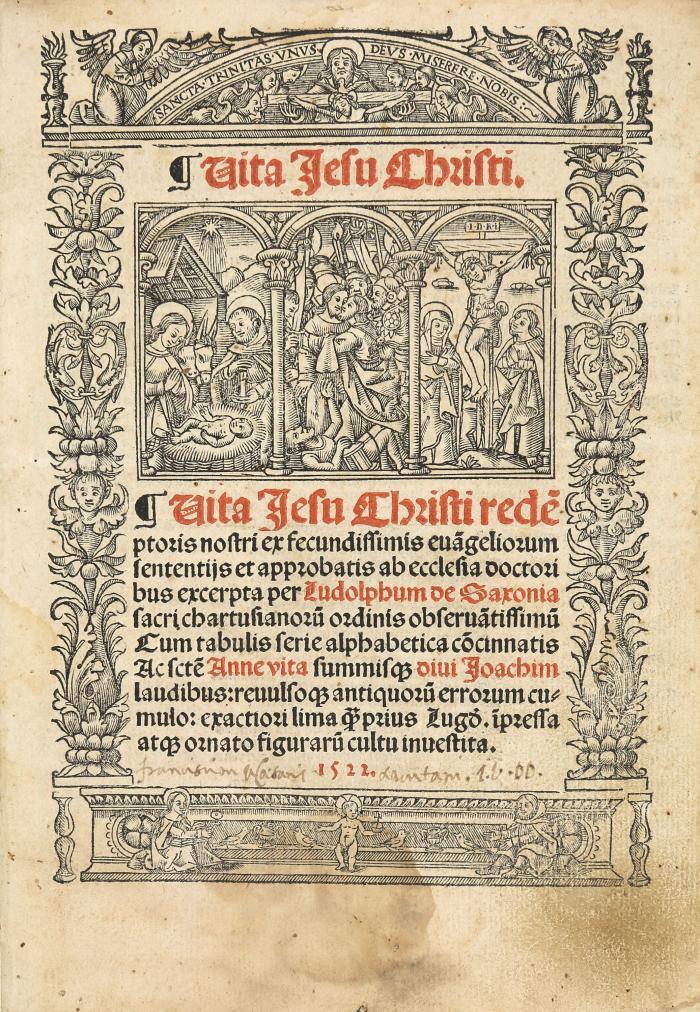 SANCTA · TRINITAS · VNVS · DEVS · MISERERE · NOBIS :
¶ Uita Jesu Christi.
I N R I
¶ Uita Jesu Christi redẽ
ptoris nostri ex fecundissimis euãgeliorum
sententijs et approbatis ab ecclesia doctori
bus excerpta per Ludolphum de Saxonia
sacri chartusianorũ ordinis obseruãtissimũ
Cum tabulis serie alphabetica cõcinnatis
Ac sctẽ Anne vita summisqꝫ diui Joachim
laudibus: reuulsoqꝫ antiquorũ errorum cu⸗
mulo: exactiori lima q̃ꝫ prius Lugd̃. ĩpressa
atqꝫ ornato figurarũ cultu inuestita.
1522.